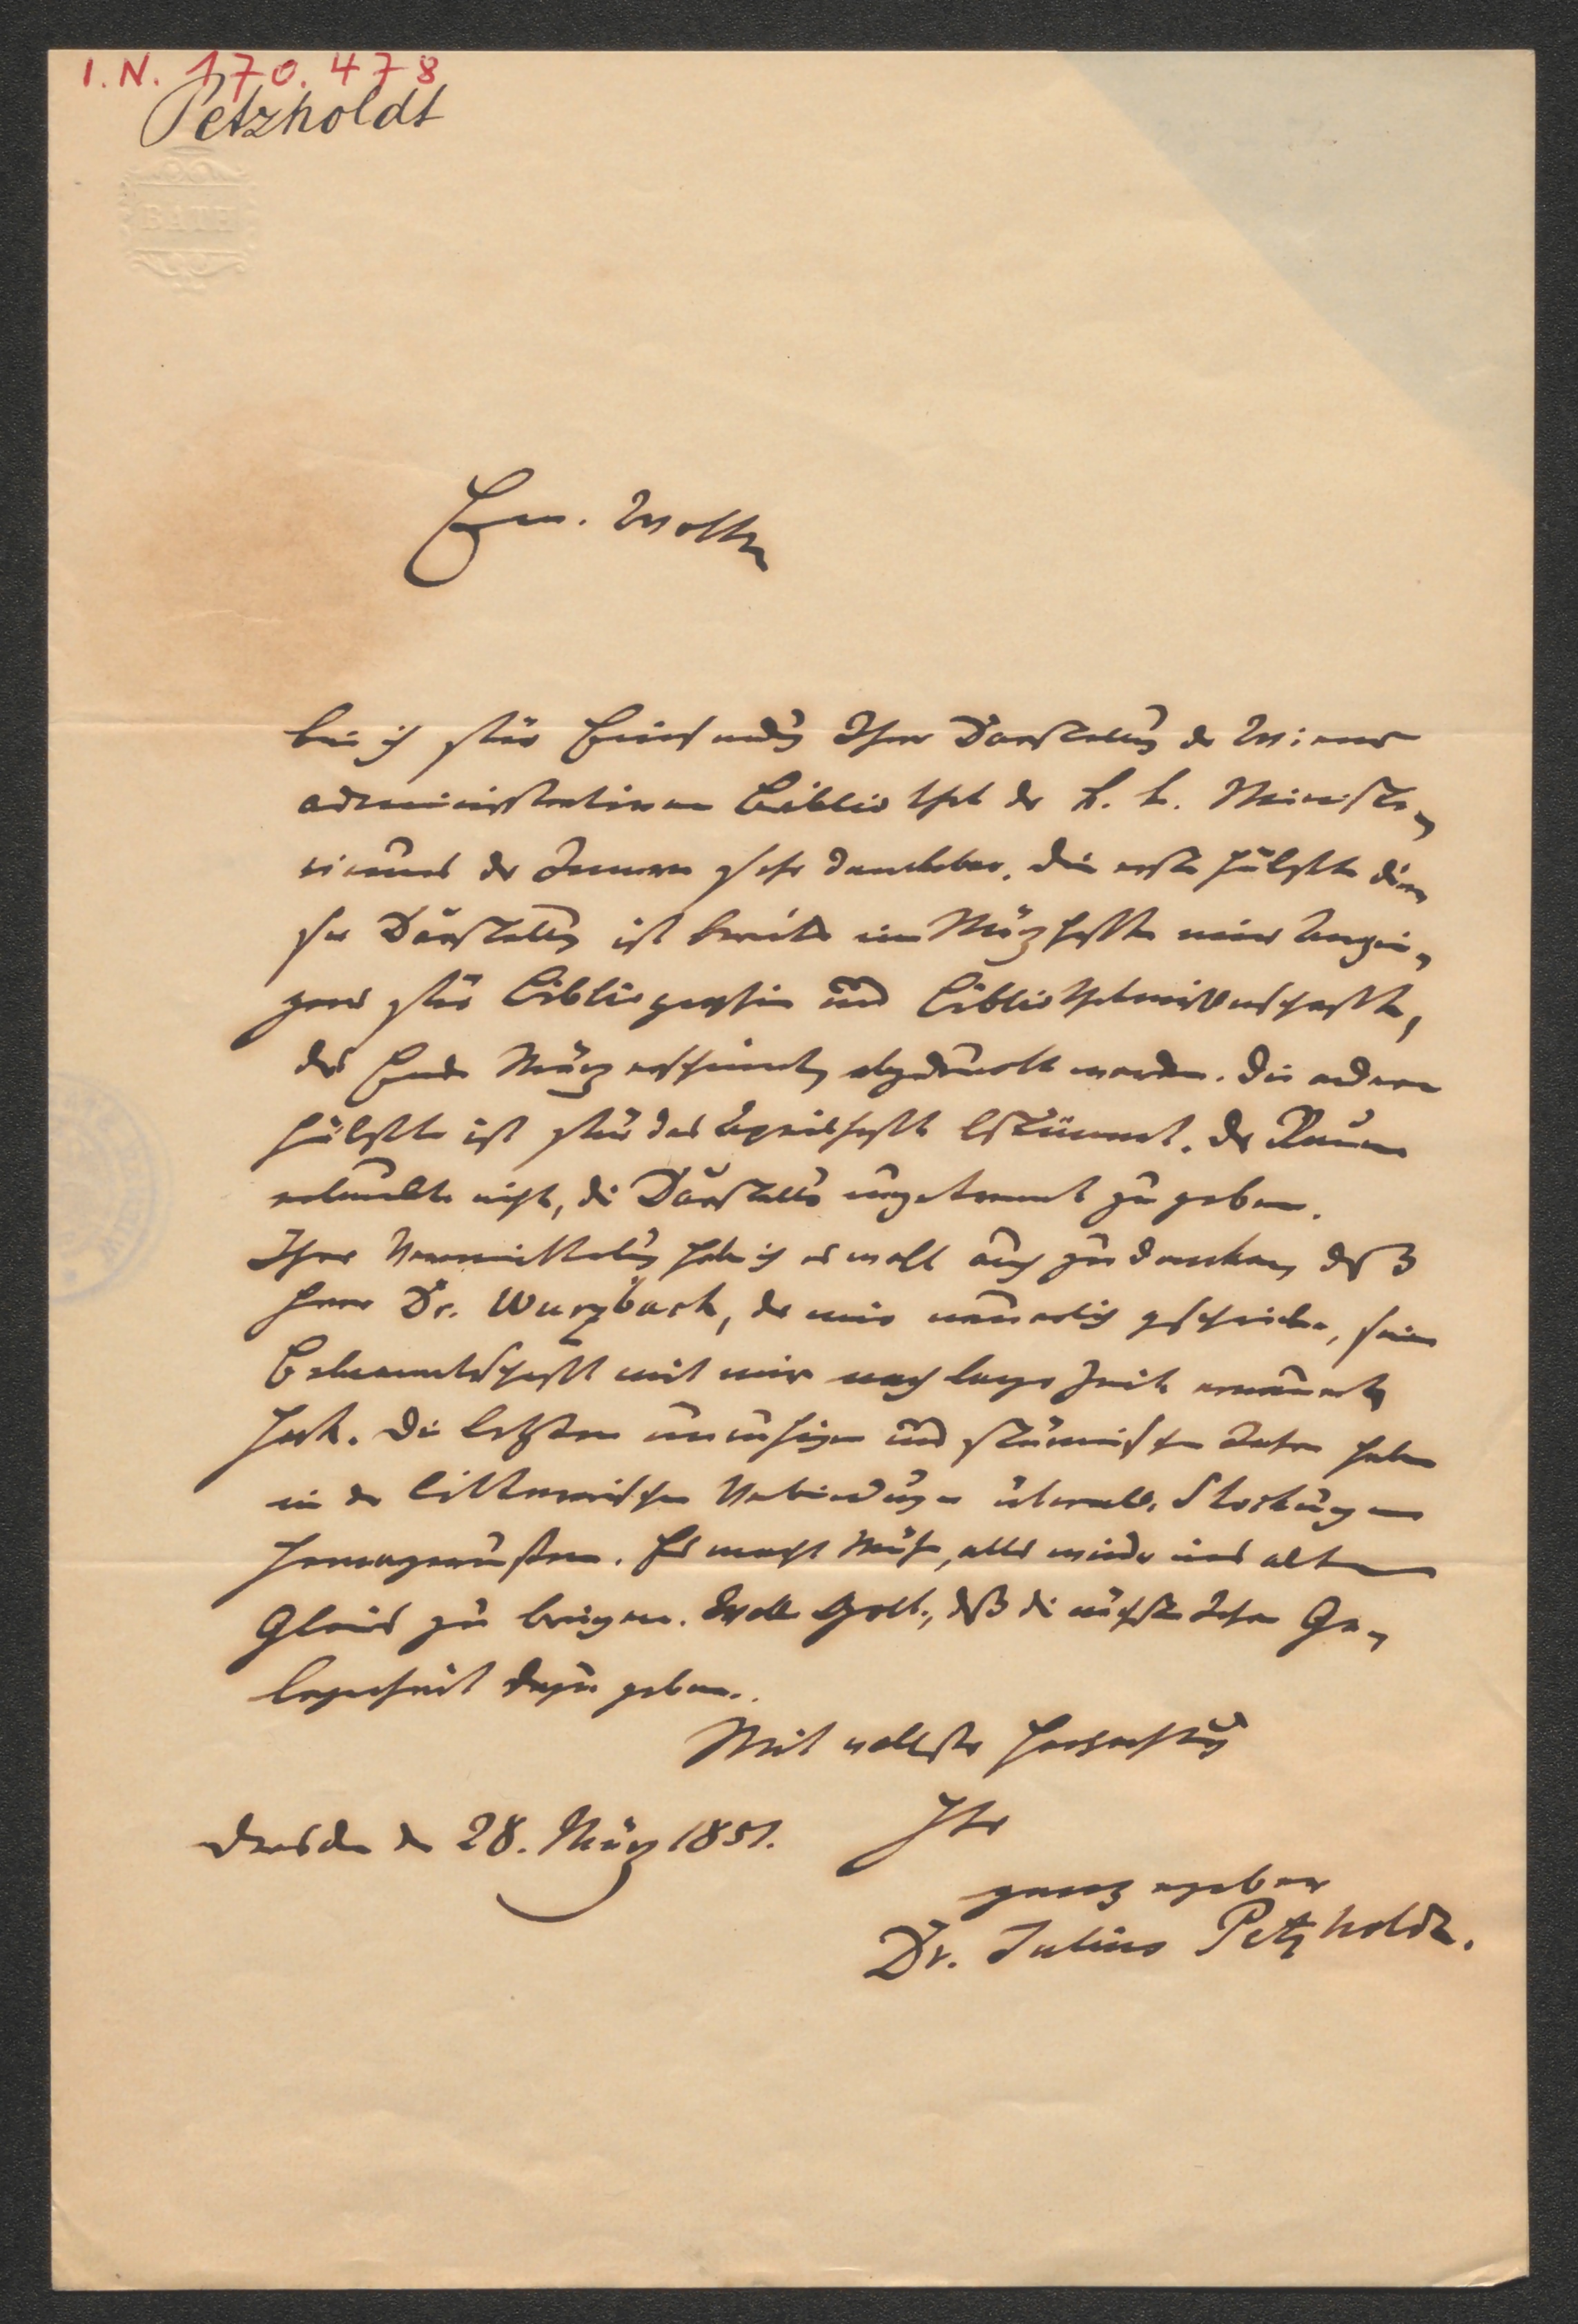 I.N. 170.478
Petzholdt
BATH
Ew. Wolhlg
bin ich für Einsendung Ihrer Darstellung der Wiener
administrativen Bibliothek des k. k. Ministe-
riums des Innern sehr dankbar. Die erste Hälfte die-
ser Darstellung ist bereits im Märzhefte meines Anzei-
gers für Bibliographie und Bibliothekwissenschaft,
das Ende März erscheint, abgedruckt worden. Die andere
Hälfte ist für das Aprilheft bestimmt. Der Raum
erlaubte nicht, die Darstellung ungetrennt zu geben.
Ihrer Vermittelung habe ich es wohl auch zu danken, daß
Herr Dr. Wurzbach, der mir neuerlich geschrieben, seine
Bekanntschaft mit mir nach langer Zeit erneuert
hat. Die letzten unruhigen und stürmischen Jahre haben
in den litterarischen Verbindungen überall Stockungen
hervorgerufen. Es macht Mühe, alles wieder ins alte
Gleis zu bringen. Wolle Gott, daß die nächsten Jahre Ge-
legenheit dazu geben.
Mit vollster Hochachtung
Ihr
Dresden den 28. März 1851.
ganz ergebener
Dr. Julius Petzholdt.